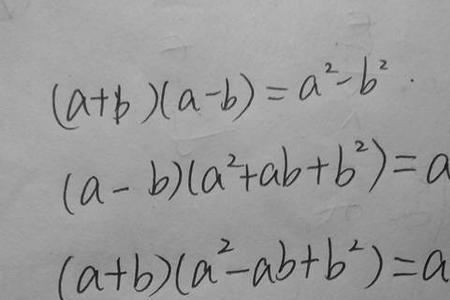 (a+b)(a-b)=a²-b².
(a-b)(a²+ab+b²)=a
(a+b)(a²-ab+b²)=a